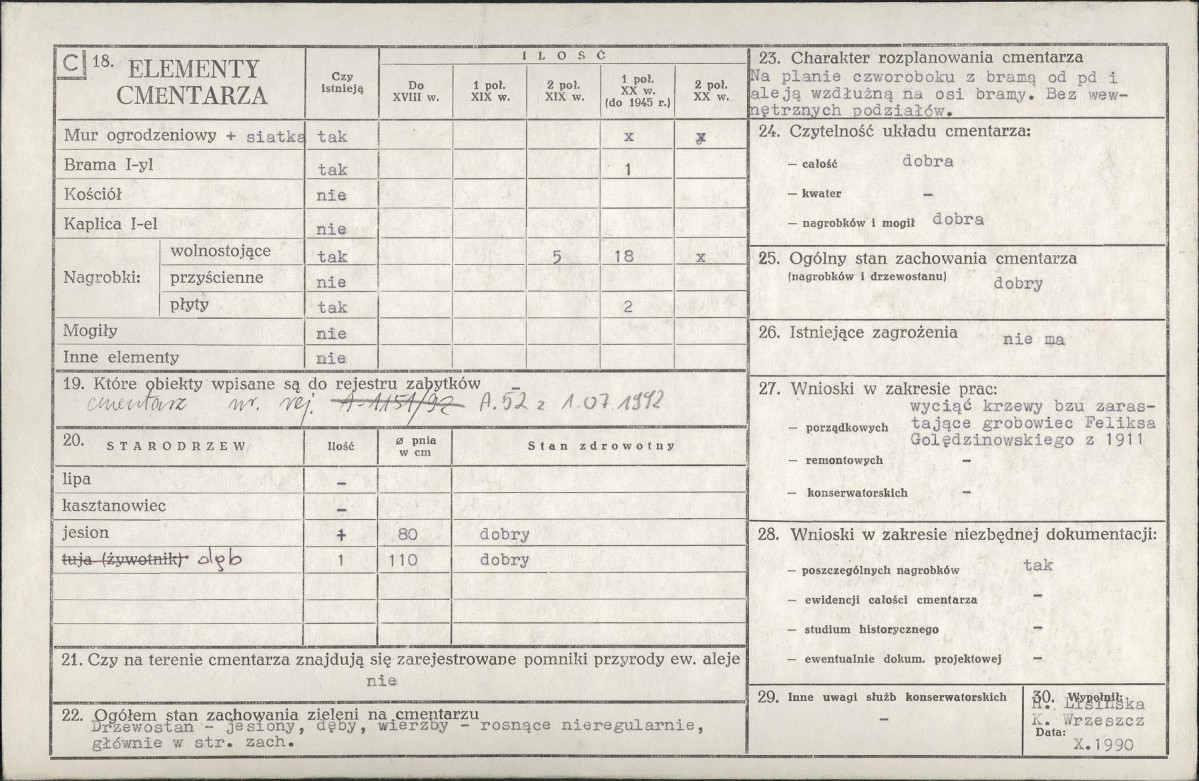 C 18. ELEMENTY CMENTARZA
Czy istnieją
I L O Ś Ć
Do XVIII w.
1 poł. XIX w.
2 poł. XIX w.
1 poł. XX w. (do 1945 r.)
2 poł. XX w.
Mur ogrodzeniowy + siatka tak x x
Brama I-yl tak 1
Kościół nie
Kaplica I-el nie
Nagrobki:
wolnostojące tak 5 18 x
przyścienne nie
płyty tak 2
Mogiły nie
Inne elementy nie
19. Które obiekty wpisane są do rejestru zabytków –
cmentarz nr. rej. A-1151/92 A.52 z 1.07.1992
20. STARODRZEW Ilość ø pnia w cm Stan zdrowotny
lipa –
kasztanowiec –
jesion + 80 dobry
tuja (żywotnik) dąb 1 110 dobry
21. Czy na terenie cmentarza znajdują się zarejestrowane pomniki przyrody ew. aleje
nie
22. Ogółem stan zachowania zieleni na cmentarzu
Drzewostan – jesiony, dęby, wierzby – rosnące nieregularnie,
głównie w str. zach.
23. Charakter rozplanowania cmentarza
Na planie czworoboku z bramą od pd i
aleją wzdłużną na osi bramy. Bez wew-
nętrznych podziałów.
24. Czytelność układu cmentarza:
– całość dobra
– kwater –
– nagrobków i mogił dobra
25. Ogólny stan zachowania cmentarza
(nagrobków i drzewostanu) dobry
26. Istniejące zagrożenia nie ma
27. Wnioski w zakresie prac:
wyciąć krzewy bzu zaras-
– porządkowych tające grobowiec Feliksa
Golędzinowskiego z 1911
– remontowych –
– konserwatorskich –
28. Wnioski w zakresie niezbędnej dokumentacji:
– poszczególnych nagrobków tak
– ewidencji całości cmentarza –
– studium historycznego –
– ewentualnie dokum. projektowej –
29. Inne uwagi służb konserwatorskich
–
30. Wypełnił:
H. Lisińska
K. Wrzeszcz
Data:
X.1990